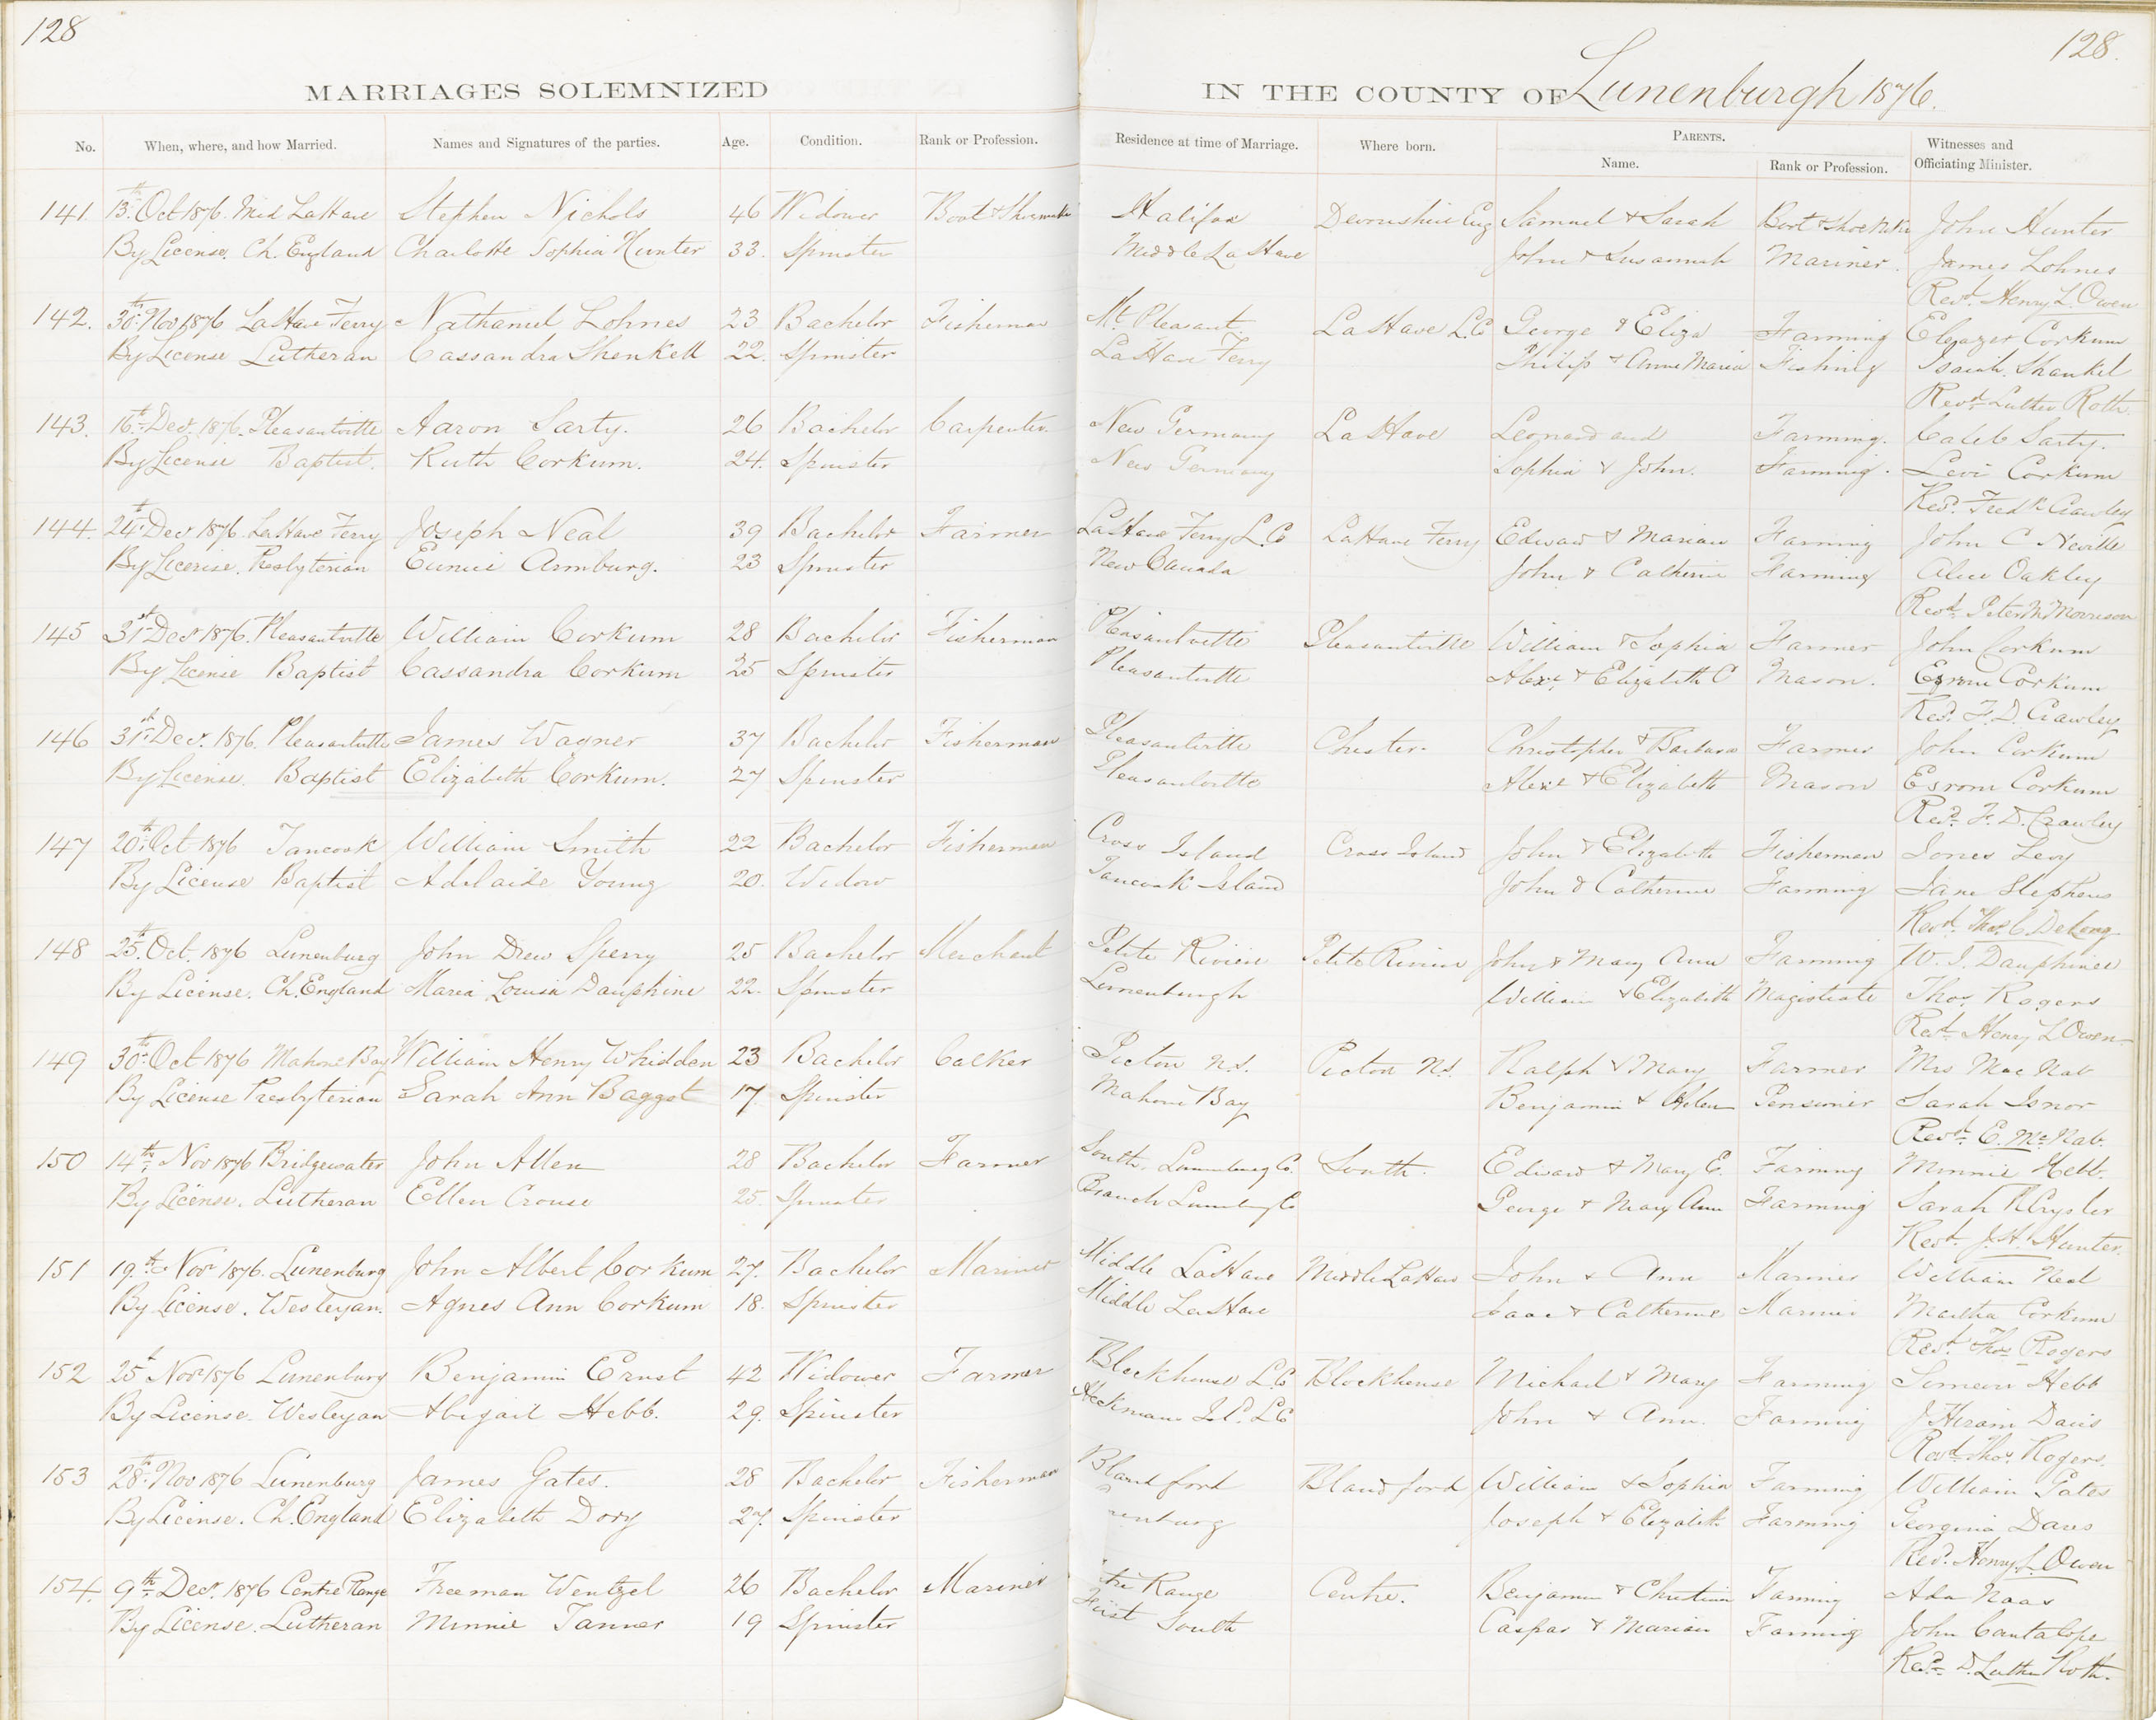 128
128.
MARRIAGES SOLEMNIZED IN THE COUNTY OF Lunenburgh 1876.
No. When, where, and how Married. Names and Signatures of the parties. Age. Condition. Rank or Profession. Residence at time of Marriage. Where born. PARENTS. Name. Rank or Profession. Witnesses and Officiating Minister.
141. 13th Oct 1876. Mid LaHave Stephen Nichols 46 Widower Boot & Shoemaker Halifax Devonshire Eng Samuel & Sarah Boot & Shoe Mkr John Hunter
By License. Ch. England Charlotte Sophia Hunter 33. Spinster Middle La Have John & Susannah Mariner. James Lohnes
Revd. Henry L. Owen
142. 30th Nov 1876 LaHave Ferry Nathaniel Lohnes 23 Bachelor Fisherman Mt. Pleasant. LaHave L.C George & Eliza Farming Eleazer Corkum
By License Lutheran Cassandra Shenkell 22. Spinster LaHave Ferry Philip & Anne Maria Fishing Isaiah. Shankel
Revd. Luther Roth.
143. 16th Decr. 1876. Pleasantville Aaron Sarty. 26 Bachelor Carpenter. New Germany LaHave Leonard and Farming. Caleb Sarty.
By License Baptist. Ruth Corkum. 24. Spinster New Germany Sophia & John. Farming. Levi Corkum
Revd. Fredk Crawley
144. 24th Decr 1876. LaHave Ferry Joseph Neal 39 Bachelor Farmer LaHave Ferry L.Co LaHave Ferry Edward & Marian Farming John C Neville
By License. Presbyterian Eunice Armburg. 23 Spinster New Canada John & Catherine Farming Alice Oakley
Revd. Peter M Morrison
145 31st Decr 1876. Pleasantville William Corkum 28 Bachelor Fisherman Pleasantville Pleasantville William & Sophia Farmer John Corkum
By License Baptist Cassandra Corkum 25 Spinster Pleasantville Alexr. & Elizabeth C Mason. Esrom Corkum
Revd. F. D. Crawley
146 31st Decr. 1876. Pleasantville James Wagner 37 Bachelor Fisherman Pleasantville Chester. Christopher & Barbara Farmer John Corkum
By License. Baptist Elizabeth Corkum. 27 Spinster Pleasantville Alexr & Elizabeth Mason Esrom Corkum
Revd. F. D. Crawley
147 20th Oct 1876 Tancook William Smith 22 Bachelor Fisherman Cross Island Cross Island John & Elizabeth Fisherman Jones Levy
By License Baptist Adelaide Young 20. Widow Tancook Island John & Catherine Farming Jane Stephens
Revd. Thos. C DeLong
148 25th. Oct. 1876 Lunenburg John Drew Sperry 25 Bachelor Merchant Petite Riviere Petite Riviere John & Mary Ann Farming W. J. Dauphinee
By License. Ch. England Maria Louisa Dauphine 22. Spinster Lunenburgh William & Elizabeth Magistrate Thos. Rogers
Revd. Henry L Owen
149 30th Oct 1876 Mahone Bay William Henry Whidden 23 Bachelor Calker Pictou N.S. Pictou N.S. Ralph & Mary Farmer Mrs MacNab
By License Presbyterian Sarah Ann Baggst 17. Spinster Mahone Bay Benjamin & Helen Pensioner Sarah Isnor
Revd. E. McNab.
150 14th. Nov 1876 Bridgewater John Allen 28 Bachelor Farmer South. Lunenburg Co. South. Edward & Mary E. Farming Minnie Hebb.
By License. Lutheran Ellen Crouse 25. Spinster Branch Lunenburg Co George & Mary Ann Farming Sarah
Revd. J. A. Hunter.
151 19.th Novr 1876. Lunenburg John Albert Corkum 27. Bachelor Mariner Middle LaHave Middle LaHave John & Ann Mariner William Neal
By License. Wesleyan. Agnes Ann Corkum 18. Spinster Middle LaHave Isaac & Catherine Mariner Martha Corkum
Revd. Thos Rogers
152 25th Novr 1876 Lunenburg Benjamin Ernst 42 Widower Farmer Blockhouse L.Co Blockhouse Michael & Mary Farming Simeon Hebb
By License. Wesleyan Abigail Hebb. 29. Spinster Heckmans Isd. L.C John & Ann. Farming J Hiram Davis
Revd. Thos. Rogers.
153 28th. Nov 1876 Lunenburg James Gates. 28 Bachelor Fisherman Blandford Blandford William & Sophia Farming William Gates
By License. Ch. England Elizabeth Dory 27. Spinster nenburg Joseph & Elizabeth Farming Georgina Dares
Revd. Henry L. Owen
154. 9th Decr. 1876 Centre Range Freeman Wentzel 26 Bachelor Mariner tre Range Centre. Benjamin & Christian Farming Ada Naas
By License. Lutheran Minnie Tanner 19 Spinster First South Caspar & Marian Farming John Cantalope
Revd. D. Luther Roth.